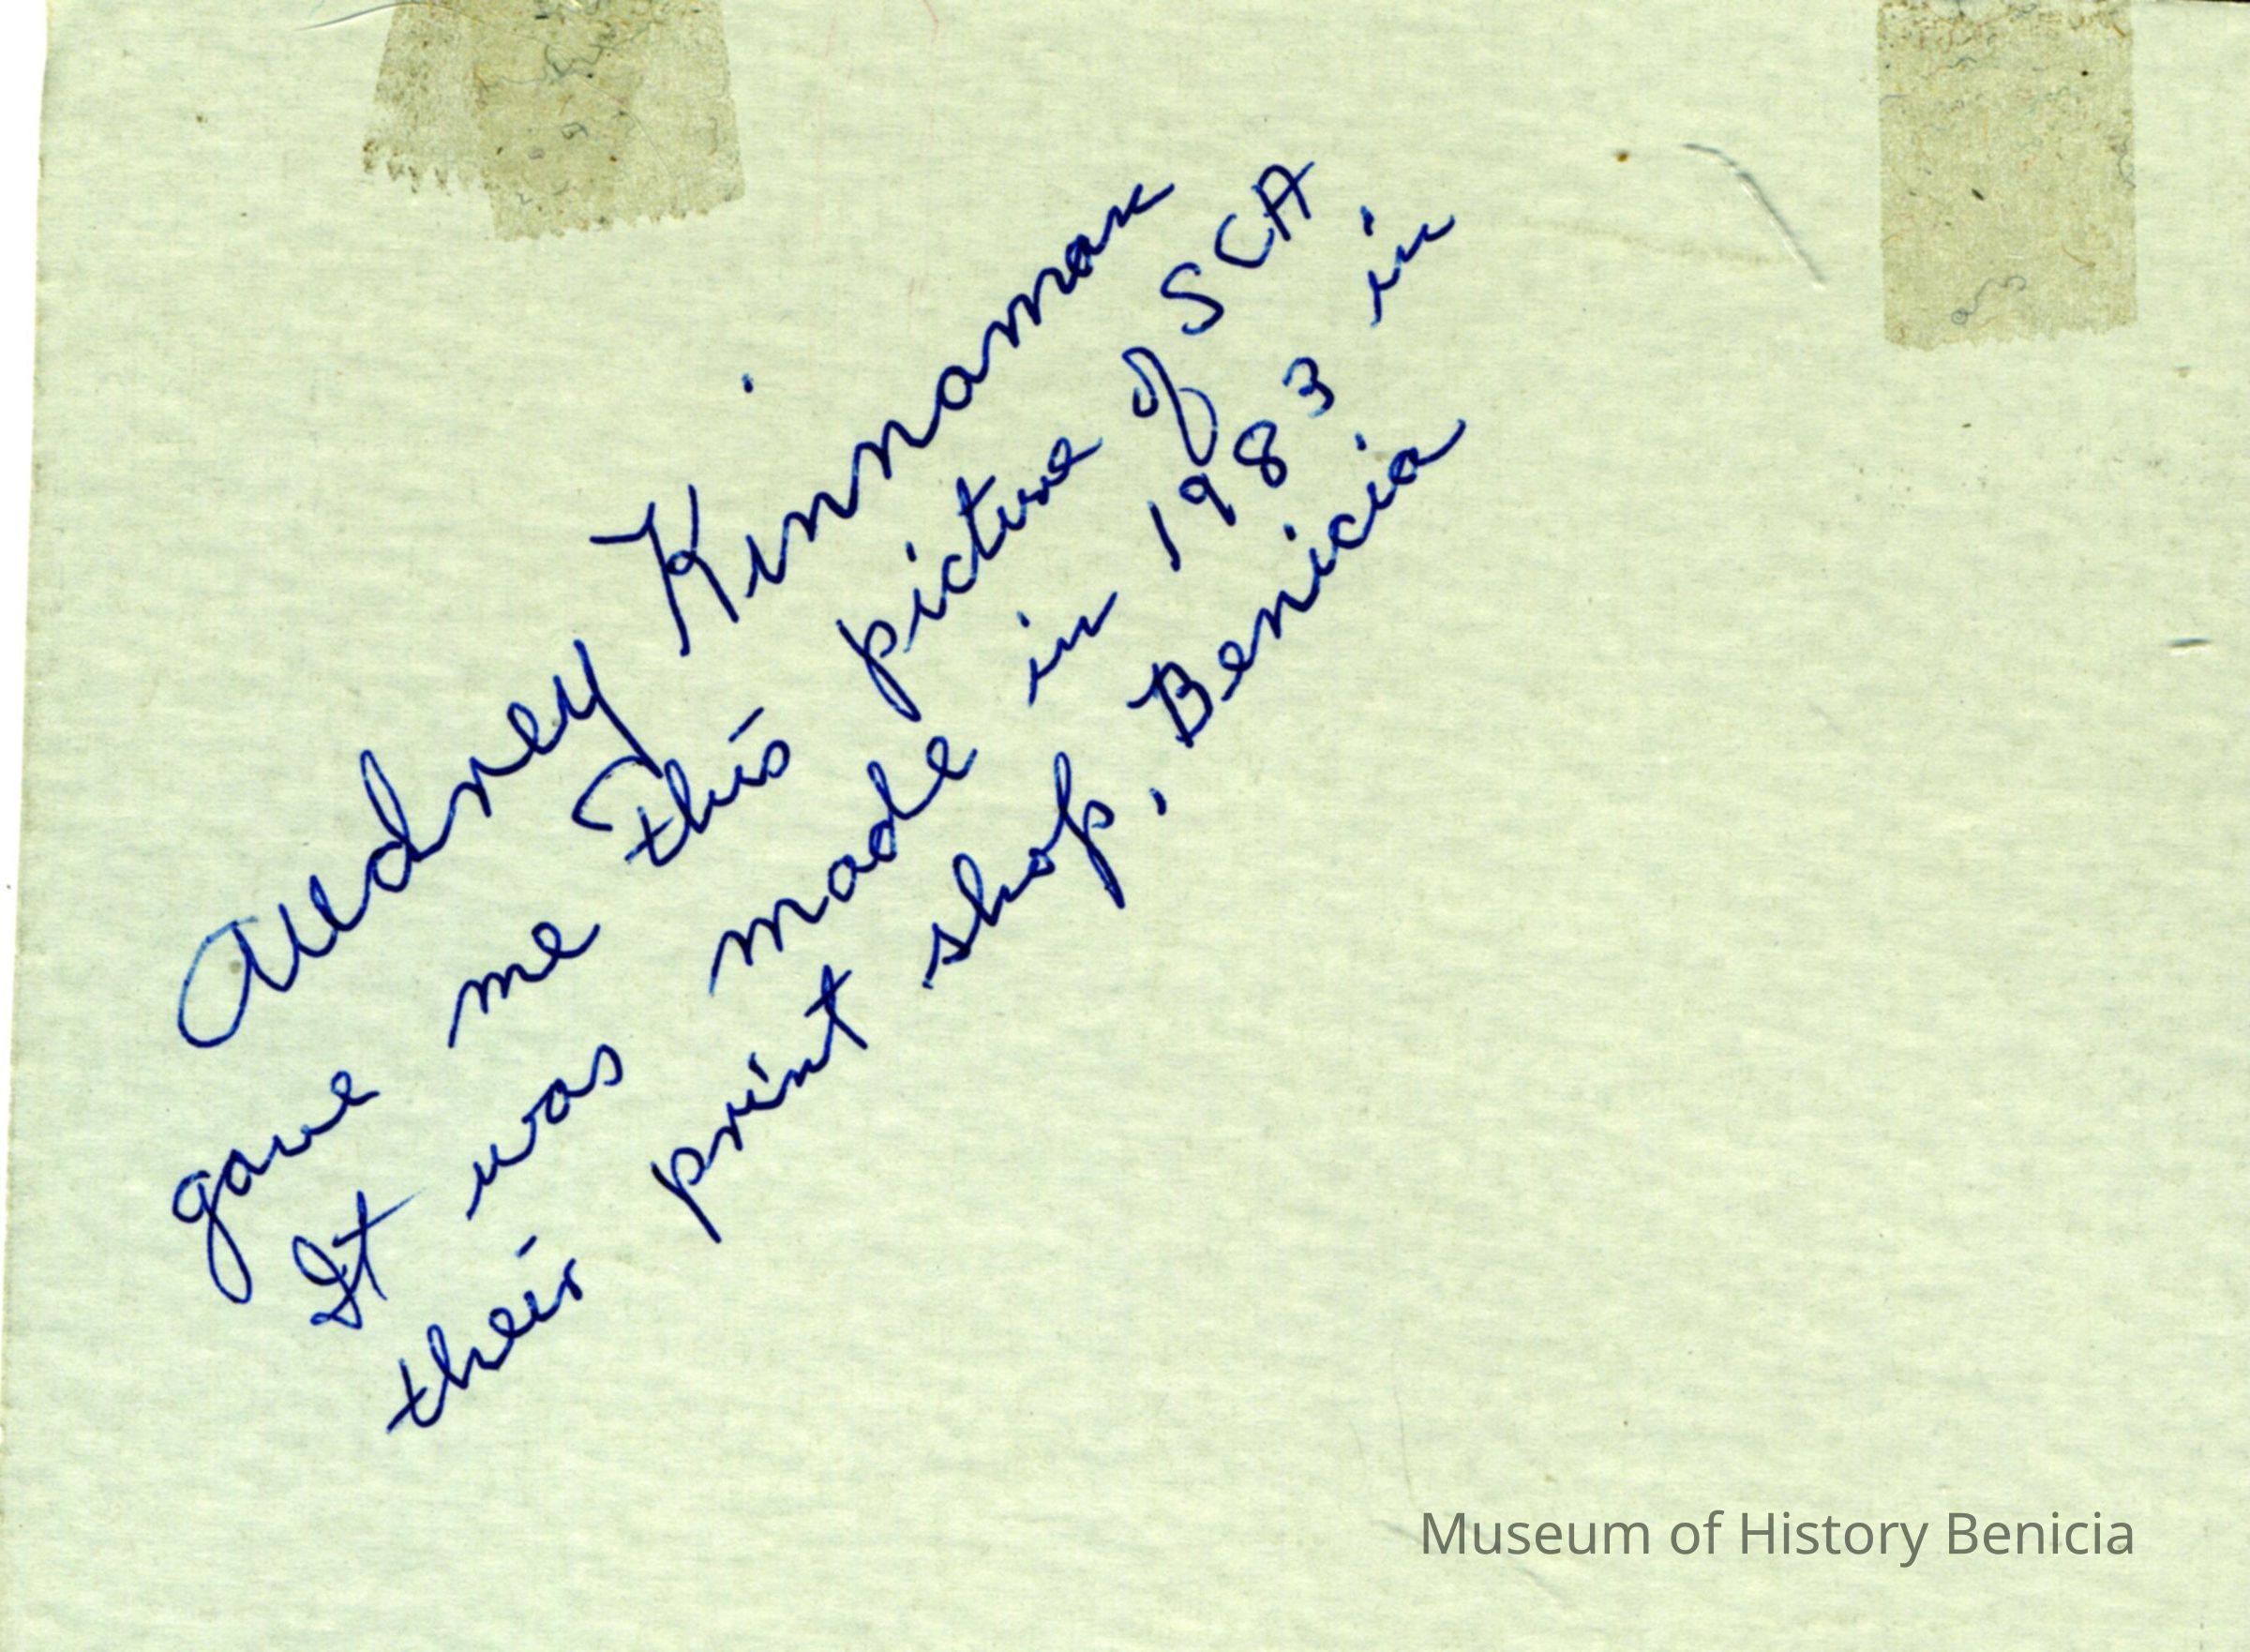 Audrey Kinnamak
gave me this picture of SCA
It was made in 1983 in
their print shop, Benicia
Museum of History Benicia